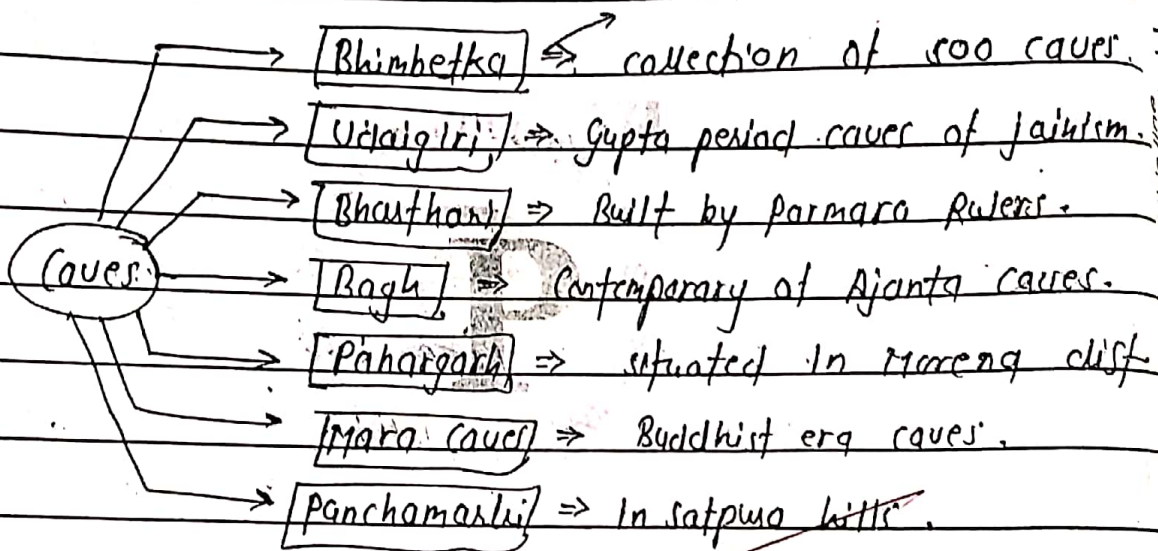 Bhimbetka ⇒ collection of 500 caves.
Udaigiri ⇒ Gupta period caves of jainism.
Bharthari ⇒ Built by Parmara Rulers.
Caves
Bagh ⇒ Contemporary of Ajanta caves.
Pahargarh ⇒ situated in Morena dist
Mara caves ⇒ Buddhist era caves.
Panchamarhi ⇒ In satpura hills.